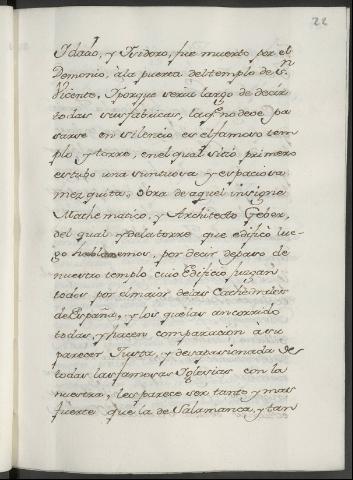 22
Idacio, y Isidoro, fue muerto por el
Domonio, à la puerta del templo de Sn
Vicente, I porque seria largo de decir
todas sus fabricas, la qe no deve pa
sarse en silencio es el famoso tem
plo y torre, en el qual sitio primero
estubo una suntuosa y espaciosa
mezquita, obra de aquel insigne
Mathematico, y Architecto Geber,
del qual y de la torre que edificò lue-
go hablaremos, por decir de paso de
nuestro templo cuio Edificio juzgan
todos por el maior de las Cathedrales
de España, y los que las an corrido
todas, y hacen comparacion à su
parecer Justa, y desapasionada de
todas las famosas Iglesias con la
nuestra, les parece ser tanto y mas
fuerte que la de Salamanca, y tan